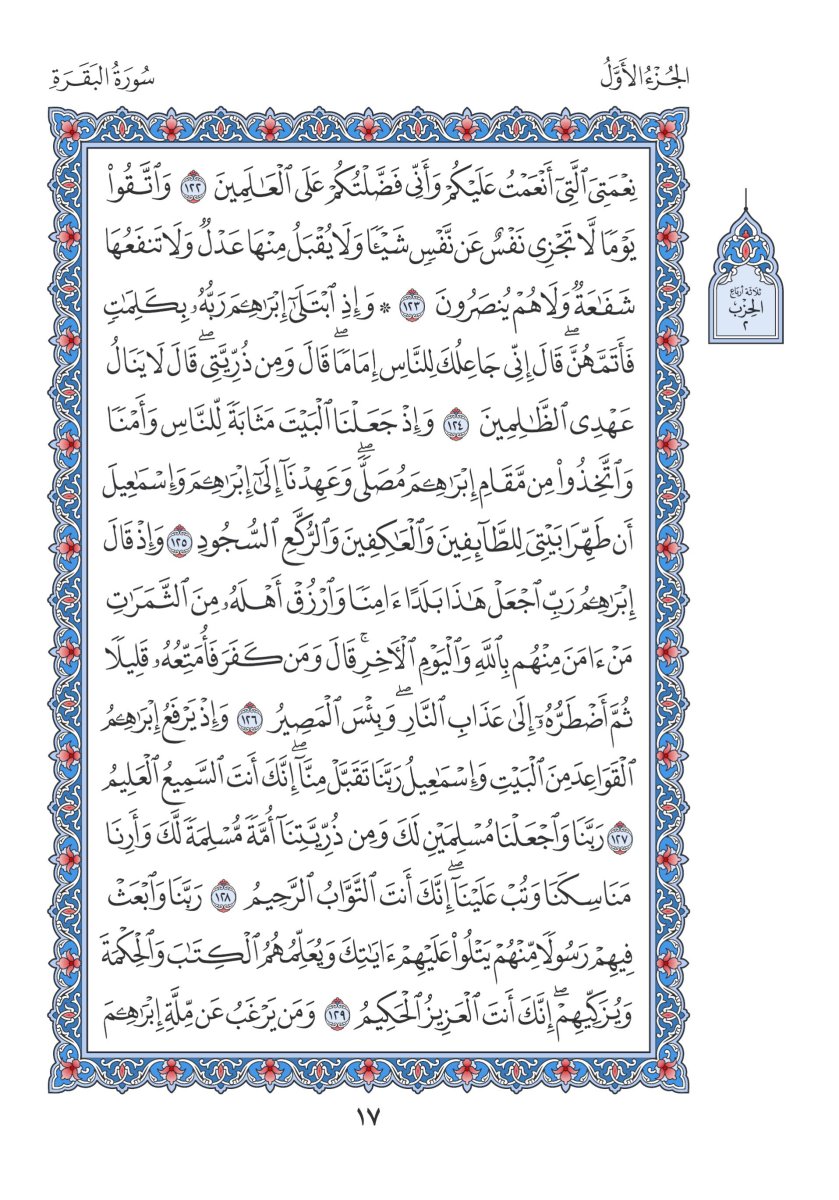 الجُزْءُ الأَوَّلُ
سُورَةُ البَقَرَةِ
نِعۡمَتِيَ ٱلَّتِيٓ أَنۡعَمۡتُ عَلَيۡكُمۡ وَأَنِّي فَضَّلۡتُكُمۡ عَلَى ٱلۡعَٰلَمِينَ ١٢٢ وَٱتَّقُواْ
يَوۡمٗا لَّا تَجۡزِي نَفۡسٌ عَن نَّفۡسٖ شَيۡـٔٗا وَلَا يُقۡبَلُ مِنۡهَا عَدۡلٞ وَلَا تَنفَعُهَا
شَفَٰعَةٞ وَلَا هُمۡ يُنصَرُونَ ١٢٣ * وَإِذِ ٱبۡتَلَىٰٓ إِبۡرَٰهِـۧمَ رَبُّهُۥ بِكَلِمَٰتٖ
فَأَتَمَّهُنَّۖ قَالَ إِنِّي جَاعِلُكَ لِلنَّاسِ إِمَامٗاۖ قَالَ وَمِن ذُرِّيَّتِيۖ قَالَ لَا يَنَالُ
عَهۡدِي ٱلظَّٰلِمِينَ ١٢٤ وَإِذۡ جَعَلۡنَا ٱلۡبَيۡتَ مَثَابَةٗ لِّلنَّاسِ وَأَمۡنٗا
وَٱتَّخِذُواْ مِن مَّقَامِ إِبۡرَٰهِـۧمَ مُصَلّٗىۖ وَعَهِدۡنَآ إِلَىٰٓ إِبۡرَٰهِـۧمَ وَإِسۡمَٰعِيلَ
أَن طَهِّرَا بَيۡتِيَ لِلطَّآئِفِينَ وَٱلۡعَٰكِفِينَ وَٱلرُّكَّعِ ٱلسُّجُودِ ١٢٥ وَإِذۡ قَالَ
إِبۡرَٰهِـۧمُ رَبِّ ٱجۡعَلۡ هَٰذَا بَلَدًا ءَامِنٗا وَٱرۡزُقۡ أَهۡلَهُۥ مِنَ ٱلثَّمَرَٰتِ
مَنۡ ءَامَنَ مِنۡهُم بِٱللَّهِ وَٱلۡيَوۡمِ ٱلۡأٓخِرِۚ قَالَ وَمَن كَفَرَ فَأُمَتِّعُهُۥ قَلِيلٗا
ثُمَّ أَضۡطَرُّهُۥٓ إِلَىٰ عَذَابِ ٱلنَّارِۖ وَبِئۡسَ ٱلۡمَصِيرُ ١٢٦ وَإِذۡ يَرۡفَعُ إِبۡرَٰهِـۧمُ
ٱلۡقَوَاعِدَ مِنَ ٱلۡبَيۡتِ وَإِسۡمَٰعِيلُ رَبَّنَا تَقَبَّلۡ مِنَّآۖ إِنَّكَ أَنتَ ٱلسَّمِيعُ ٱلۡعَلِيمُ
١٢٧ رَبَّنَا وَٱجۡعَلۡنَا مُسۡلِمَيۡنِ لَكَ وَمِن ذُرِّيَّتِنَآ أُمَّةٗ مُّسۡلِمَةٗ لَّكَ وَأَرِنَا
مَنَاسِكَنَا وَتُبۡ عَلَيۡنَآۖ إِنَّكَ أَنتَ ٱلتَّوَّابُ ٱلرَّحِيمُ ١٢٨ رَبَّنَا وَٱبۡعَثۡ
فِيهِمۡ رَسُولٗا مِّنۡهُمۡ يَتۡلُواْ عَلَيۡهِمۡ ءَايَٰتِكَ وَيُعَلِّمُهُمُ ٱلۡكِتَٰبَ وَٱلۡحِكۡمَةَ
وَيُزَكِّيهِمۡۖ إِنَّكَ أَنتَ ٱلۡعَزِيزُ ٱلۡحَكِيمُ ١٢٩ وَمَن يَرۡغَبُ عَن مِّلَّةِ إِبۡرَٰهِـۧمَ
ثلاثة أرباع
الحِزْب
٢
١٧